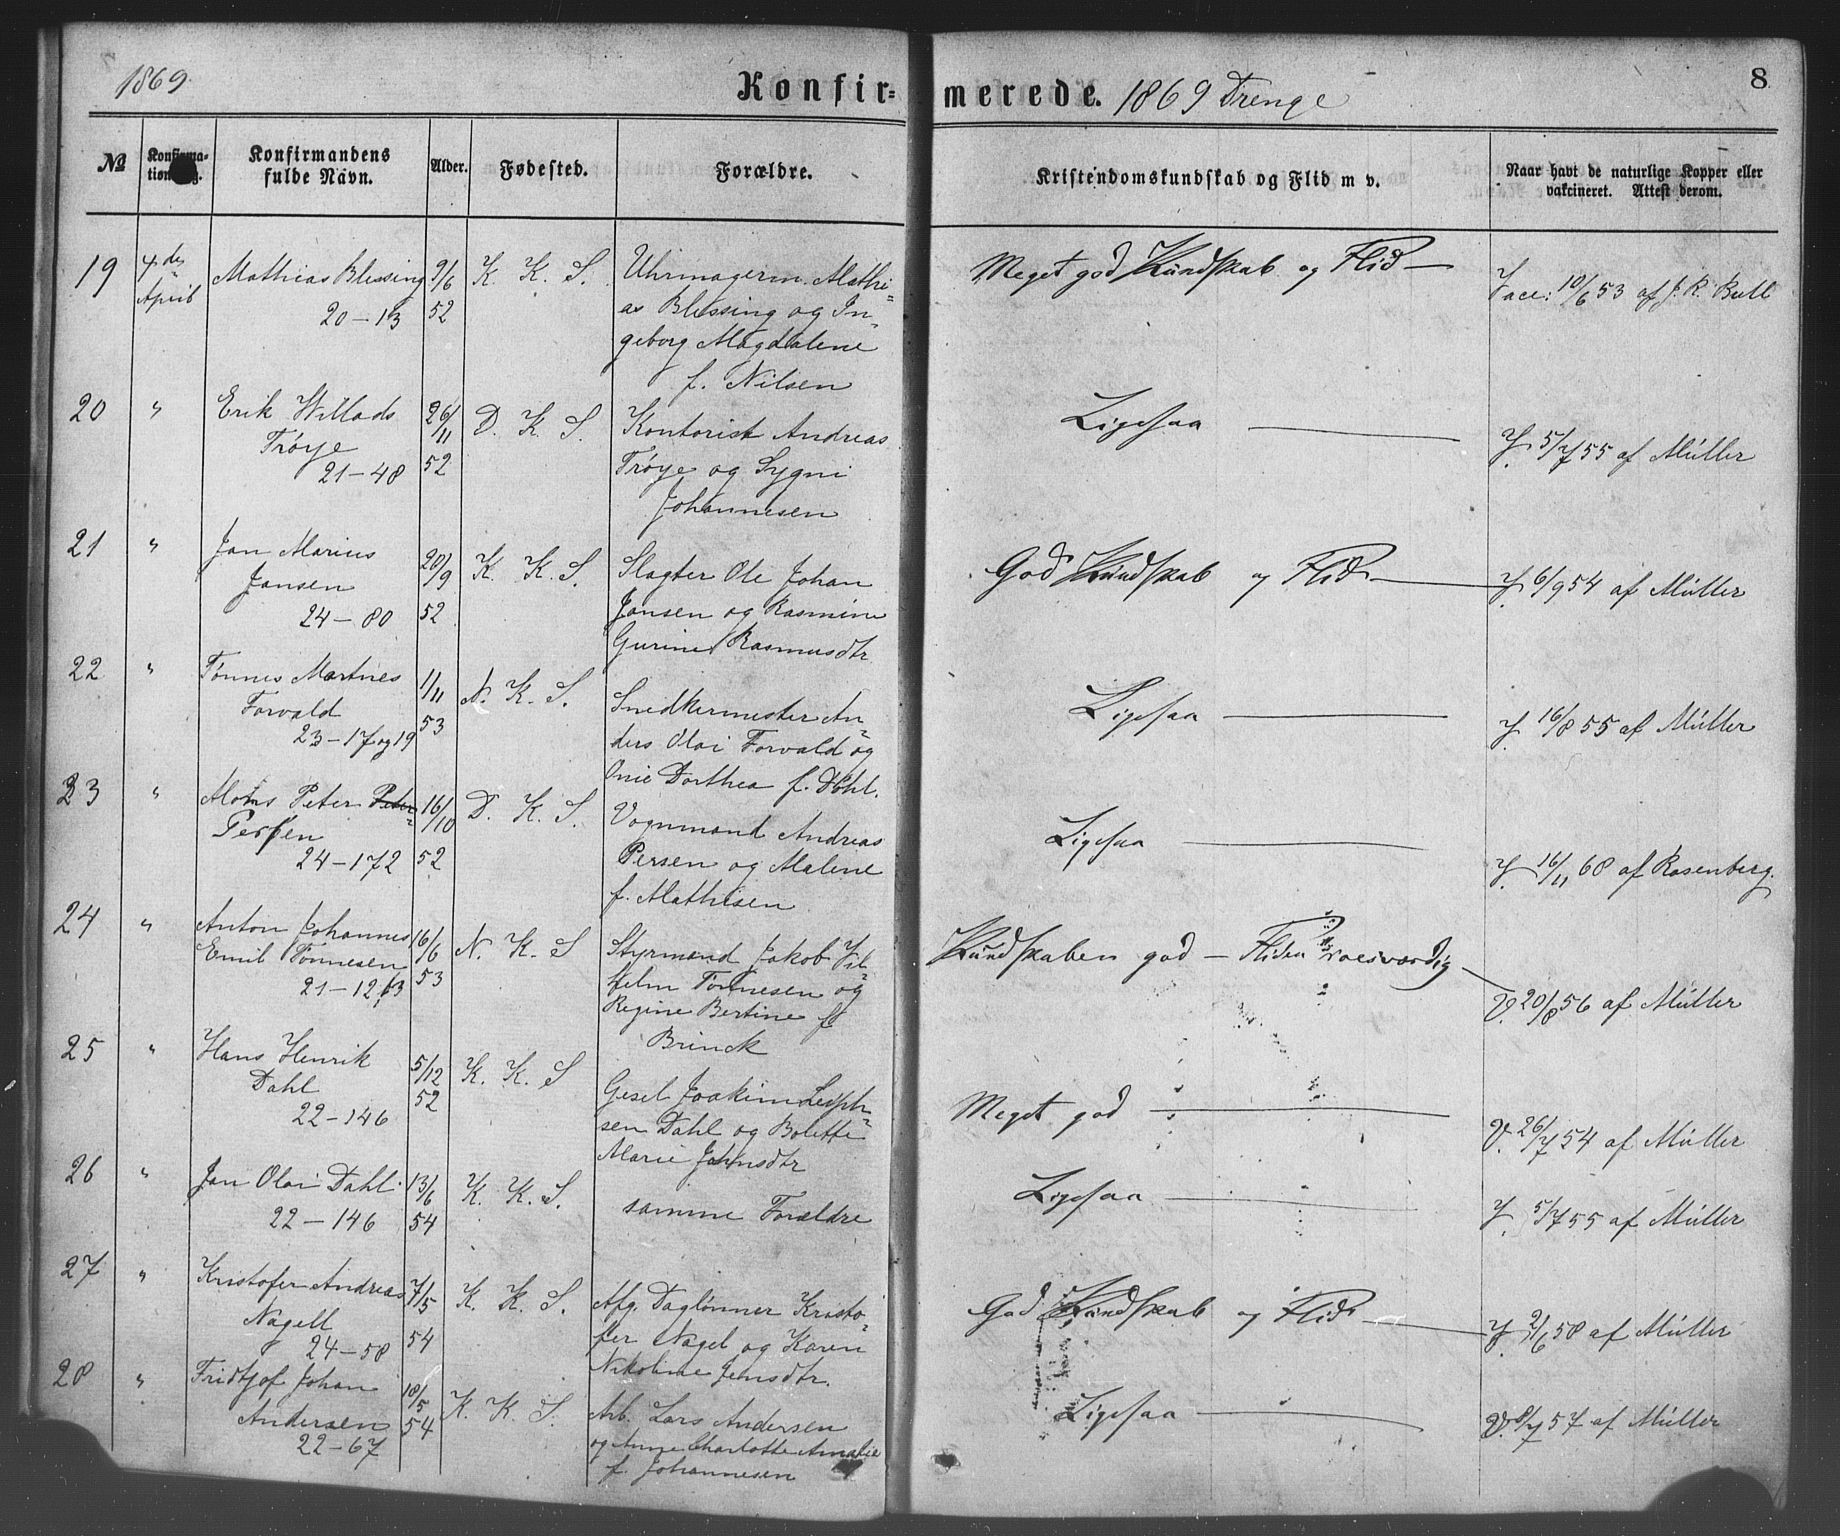 1869
Konfir=
merede. 1869 Drenge
8
№
Konfirma-
Konfirmandens
fulde Navn.
Alder.
Fødested.
Forældre.
Kristendomskundskab og Flid m v.
Naar havt de naturlige Kopper eller
vakcineret. Attest derom.
19 4de April Mathias Blessing 9/6 52 K. K. S. Uhrmagerm. Mathi=
20-13 as Blessing og In=
geborg Magdalene
f. Nilsen
Meget god Kundskab og Flid —
Vacc: 10/6 53 af J. R. Bull
20 " Erik Willads 26/11 52 D. K. S. Kontorist Andreas
Trøye Trøye og Sygni
21-48 Johannesen
Ligesaa —
V. 5/7 55 af Müller
21 " Jan Marius 20/9 52 K. K. S. Slagter Ole Johan
Jansen Jansen og Rasmine
24-80 Gurine Rasmusdtr
God Kundskab og Flid —
V. 6/9 54 af Müller
22 " Tønnes Martnes 1/11 53 N. K. S. Snedkermester An=
Torvald ders Olai Torvald og
23-17 og 19 Dorthea f. Dahl.
Ligesaa —
V. 16/8 55 af Müller
23 " Peter Peter= 16/10 52 D. K. S. Vognmand Andreas
Persen Persen og Malene
24-172 f. Mathisen
Ligesaa —
V. 16/11 68 af Rosenberg.
24 " Anton Johannes 16/6 53 N. K. S Styrmand Jakob Vil=
Emil Tønnesen helm Tønnesen og
21-12 Regine Bertine f
Brinck
Kundskaben god — Fliden Prosværdig —
V. 20/8 56 af Müller
25 " Hans Henrik 5/12 52 K. K. S Gesel Joakim
Dahl sen Dahl og Bolette
22-146 Marie
Meget god —
V. 26/7 54 af Müller
26 " Jan Olai Dahl. 13/6 54 K. K. S. samme Forældre
22-146
Ligesaa —
V. 5/7 55 af Müller
27 " Kristofer Andreas 7/5 54 K. K. S. Afg. Dagtønner Kristo=
Nagell fer Nagel og Karen
24-58 Nikoline Jensdtr.
God Kundskab og Flid —
V. 2/6 58 af Müller
28 " Fridtjof Johan 18/5 54 K. K. S. Arb. Lars Andersen
Andersen og Anne Charlotte Amalie
22-67 f. Johannesen
Ligesaa —
V. 8/7 57 af Müller